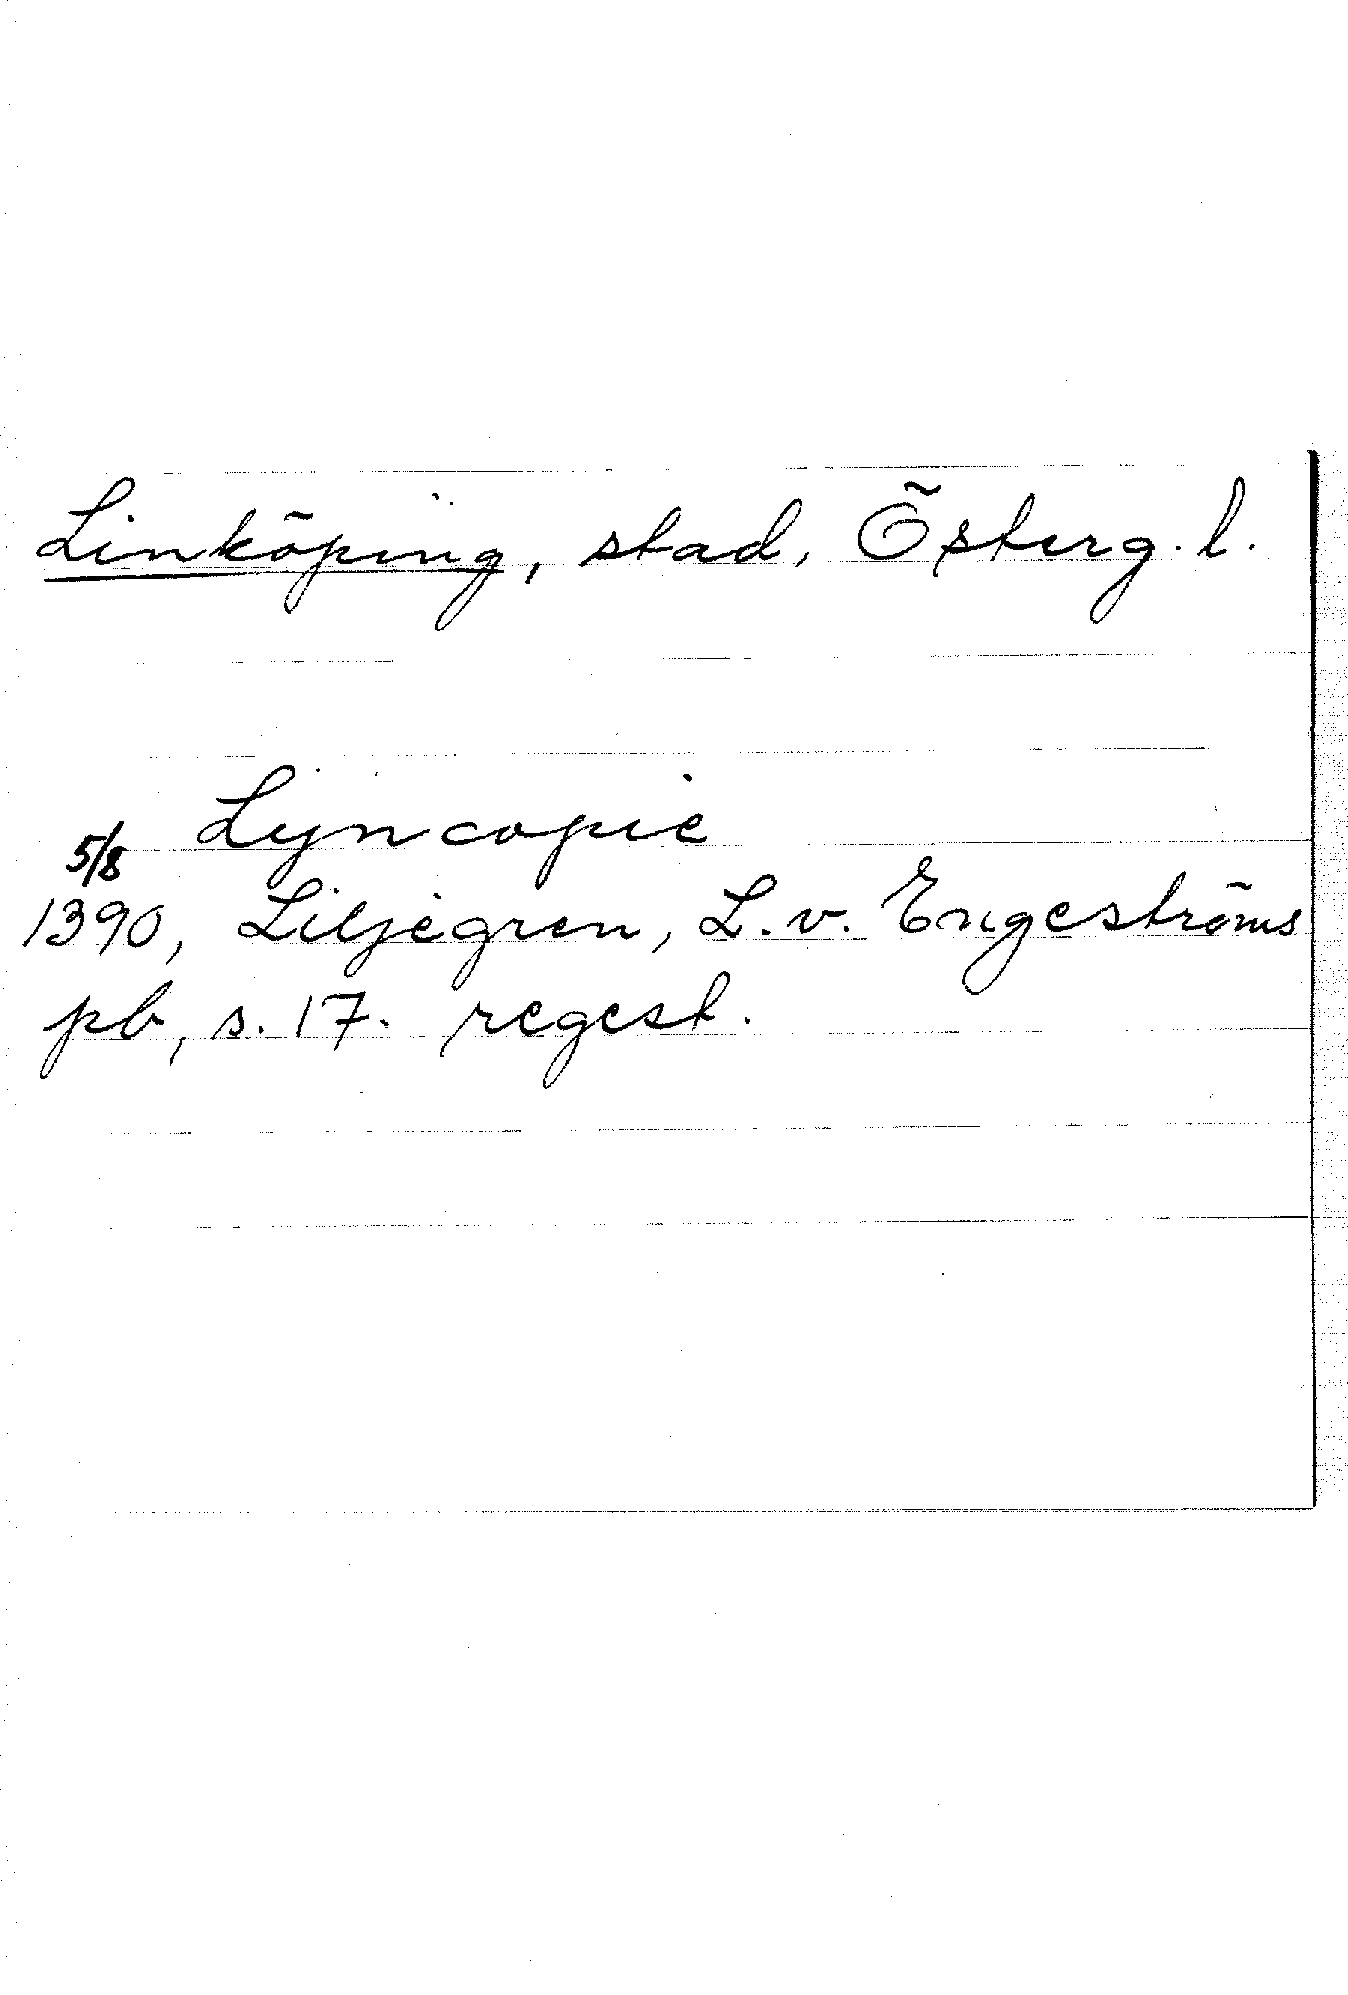 Linköping, stad, Österg. l.
Lyncopie
5/8
1390, Liljegren, L. v. Engeströms
pb, s. 17. regest.